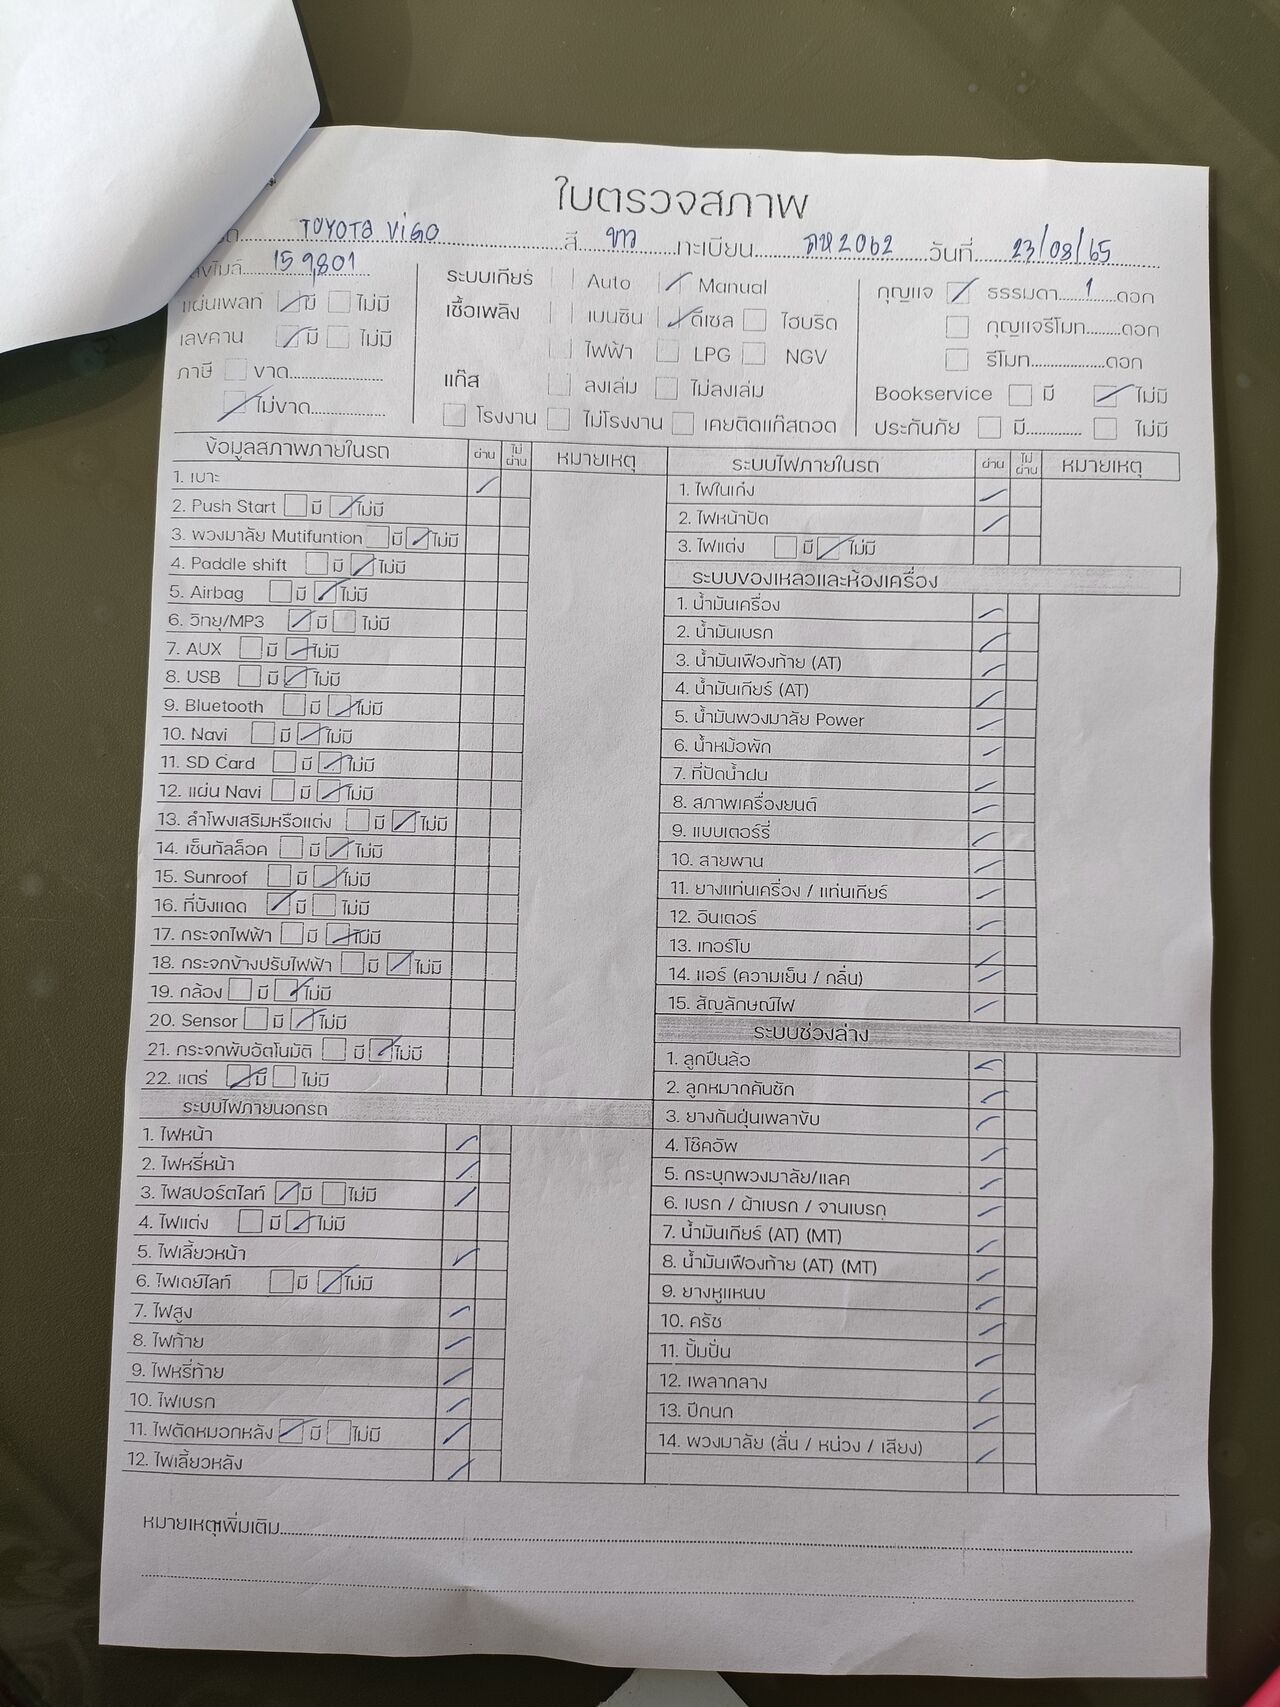 ใบตรวจสภาพ
TOYOTA ViGO สี ขาว ทะเบียน 2062 วันที่ 23/08/65
159,801
แผ่นเพลท มี ไม่มี
เลขคาน มี ไม่มี
ภาษี ขาด
ไม่ขาด
ระบบเกียร์ Auto Manual
เชื้อเพลิง เบนซิน ดีเซล ไฮบริด
ไฟฟ้า LPG NGV
แก๊ส ลงเล่ม ไม่ลงเล่ม
โรงงาน ไม่โรงงาน เคยติดแก๊สถอด
กุญแจ ธรรมดา 1 ดอก
กุญแจรีโมท ดอก
รีโมท ดอก
Bookservice มี ไม่มี
ประกันภัย มี ไม่มี
ข้อมูลสภาพภายในรถ ผ่าน ไม่ผ่าน หมายเหตุ
1. เบาะ
2. Push Start มี ไม่มี
3. พวงมาลัย Mutifuntion มี ไม่มี
4. Paddle shift มี ไม่มี
5. Airbag มี ไม่มี
6. วิทยุ/MP3 มี ไม่มี
7. AUX มี ไม่มี
8. USB มี ไม่มี
9. Bluetooth มี ไม่มี
10. Navi มี ไม่มี
11. SD Card มี ไม่มี
12. แผ่น Navi มี ไม่มี
13. ลำโพงเสริมหรือแต่ง มี ไม่มี
14. เซ็นทัลล็อค มี ไม่มี
15. Sunroof มี ไม่มี
16. ที่บังแดด มี ไม่มี
17. กระจกไฟฟ้า มี ไม่มี
18. กระจกข้างปรับไฟฟ้า มี ไม่มี
19. กล้อง มี ไม่มี
20. Sensor มี ไม่มี
21. กระจกพับอัตโนมัติ มี ไม่มี
22. แตร์ มี ไม่มี
ระบบไฟภายนอกรถ
1. ไฟหน้า
2. ไฟหรี่หน้า
3. ไฟสปอร์ตไลท์ มี ไม่มี
4. ไฟแต่ง มี ไม่มี
5. ไฟเลี้ยวหน้า
6. ไฟเดย์ไลท์ มี ไม่มี
7. ไฟสูง
8. ไฟท้าย
9. ไฟหรี่ท้าย
10. ไฟเบรก
11. ไฟตัดหมอกหลัง มี ไม่มี
12. ไฟเลี้ยวหลัง
ระบบไฟภายในรถ ผ่าน ไม่ผ่าน หมายเหตุ
1. ไฟในเก๋ง
2. ไฟหน้าปัด
3. ไฟแต่ง มี ไม่มี
ระบบของเหลวและห้องเครื่อง
1. น้ำมันเครื่อง
2. น้ำมันเบรก
3. น้ำมันเฟืองท้าย (AT)
4. น้ำมันเกียร์ (AT)
5. น้ำมันพวงมาลัย Power
6. น้ำหม้อพัก
7. ที่ปัดน้ำฝน
8. สภาพเครื่องยนต์
9. แบบเตอร์รี่
10. สายพาน
11. ยางแท่นเครื่อง / แท่นเกียร์
12. อินเตอร์
13. เทอร์โบ
14. แอร์ (ความเย็น / กลิ่น)
15. สัญลักษณ์ไฟ
ระบบช่วงล่าง
1. ลูกปืนล้อ
2. ลูกหมากคันชัก
3. ยางกันฝุ่นเพลาขับ
4. โช๊คอัพ
5. กระบุกพวงมาลัย/แลค
6. เบรก / ผ้าเบรก / จานเบรก
7. น้ำมันเกียร์ (AT) (MT)
8. น้ำมันเฟืองท้าย (AT) (MT)
9. ยางหูแหนบ
10. ครัช
11. ปั้มปั่น
12. เพลากลาง
13. ปีกนก
14. พวงมาลัย (สั่น / หน่วง / เสียง)
หมายเหตุเพิ่มเติม